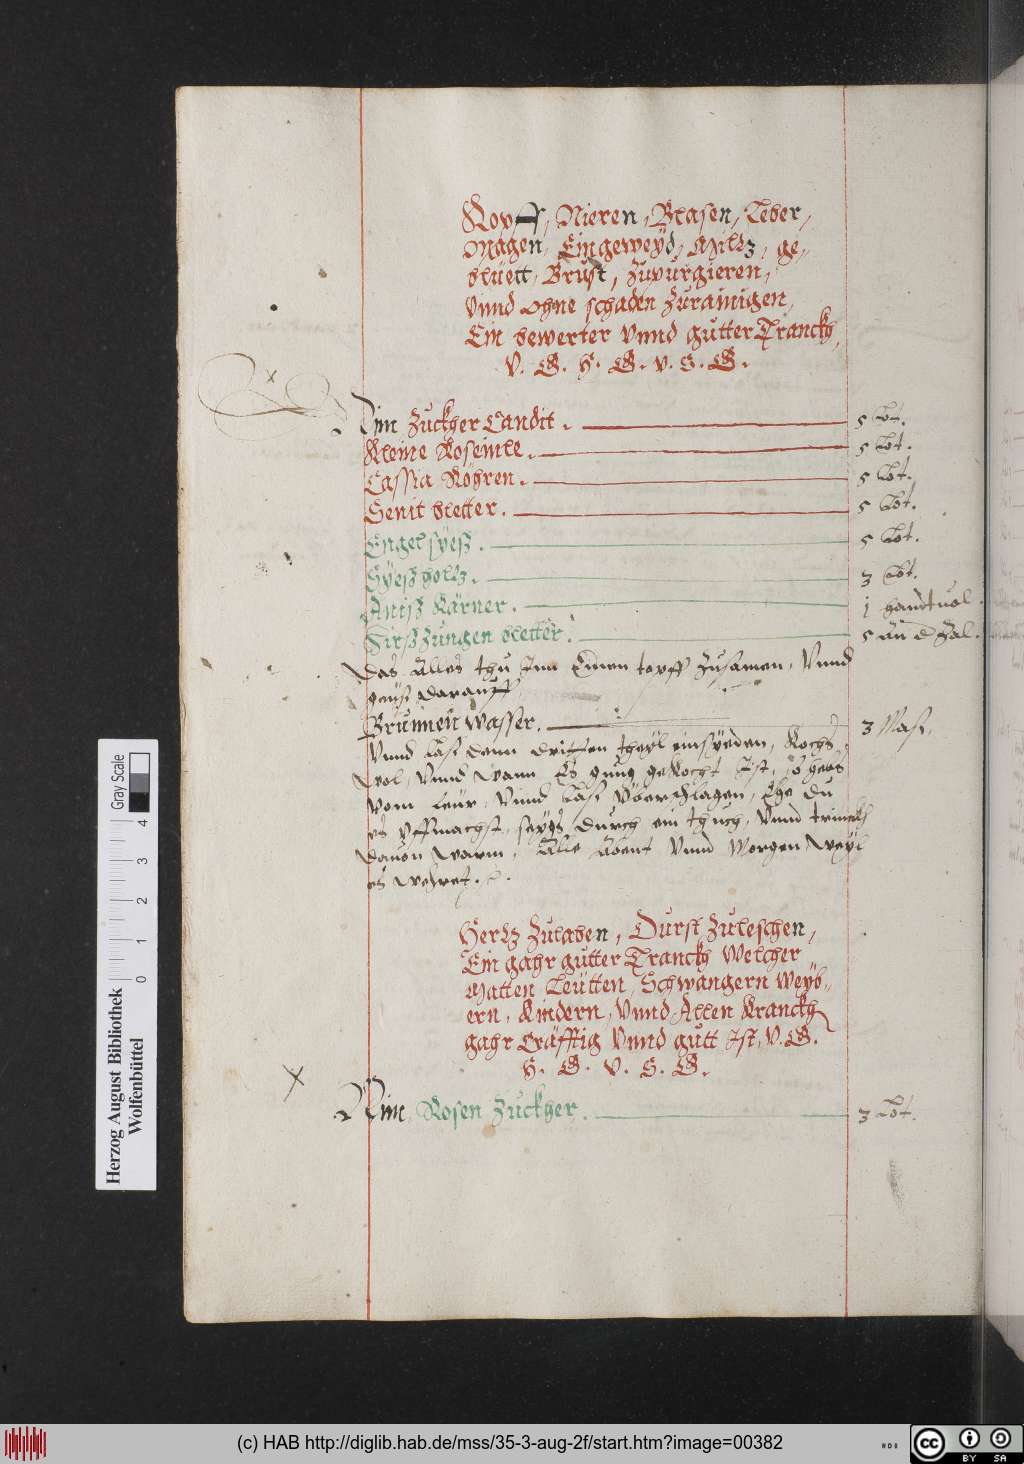 Kopff, Nieren, Blasen, Leber,
Magen, Eingeweÿd, Miltz, ge-
blüett, Brust, Zupurgieren,
Vnnd ohne schaden Zurainigen,
Ein bewerter Vnnd gutter Tranckh,
V. G. H. G. V. S. G.
Nim Zuckher Candit. 5 Lot.
Kleine Roseinle. 5 Lot.
Cassia Röhren. 5 Lot.
Senit bletter. 5 Lot.
Engelsüesz. 5 Lot.
Süeszholtz. 3 Lot.
Anisz Kärner. 1 handtuol.
Hirszzungen bletter. 5 an d Zal.
Das Alles thu Inn Einen topff Zusamen, Vnnd
geüsz darauff
Brunnen Wasser. 3 Masz.
Vnnd lasz denn dritten theÿl einsÿeden, Kochs
Wol, Vnnd Wann Es gnug gekocht Ist, so hebs
vom feür, Vnnd lasz Vberschlagen, Ehe du
es Vffmachst, seÿhs durch ein thuch, Vnnd trinckh
dauon Warm, Alle Abent Vnnd Morgen Weÿl
es Wehret.
Hertz Zulaben, Durst Zuleschen,
Ein gahr gutter Tranckh Welcher
Matten Leütten, Schwangern Weÿb-
ern, Kindern, Vnnd Allen Kranckh
gahr Cräfftig Vnnd gutt Ist, V. G.
H. G. V. S. G.
Nim Rosen Zuckher. 3 Lot.
Herzog August Bibliothek
Wolfenbüttel
Gray Scale
0 1 2 3 4
(c) HAB http://diglib.hab.de/mss/35-3-aug-2f/start.htm?image=00382
cc BY SA